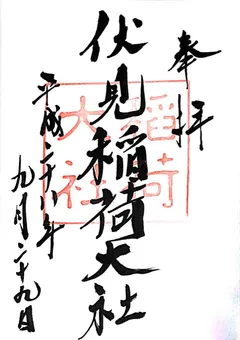 奉拝
伏見稲荷大社
稲荷
大社
平成二十八年
九月二十九日